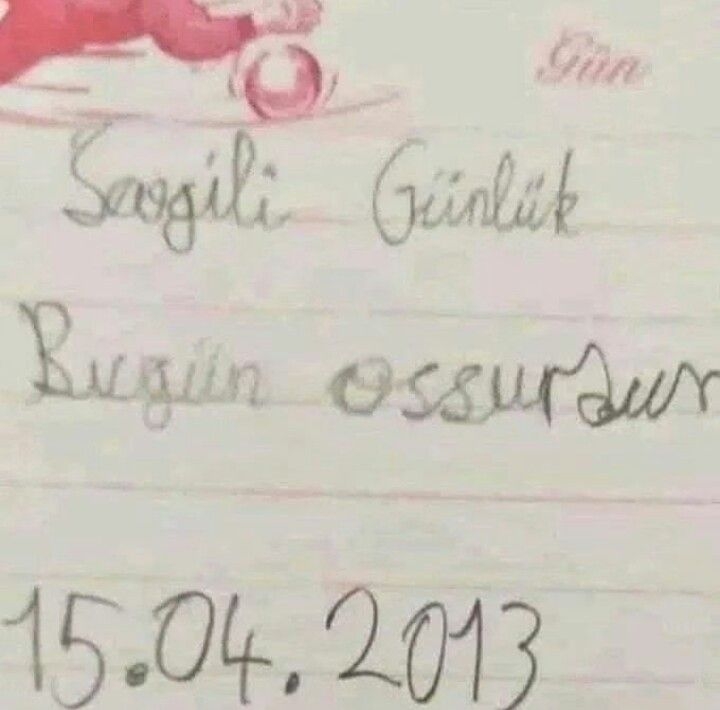 Gün
Sevgili Günlük
Bugün ossurdum
15.04.2013